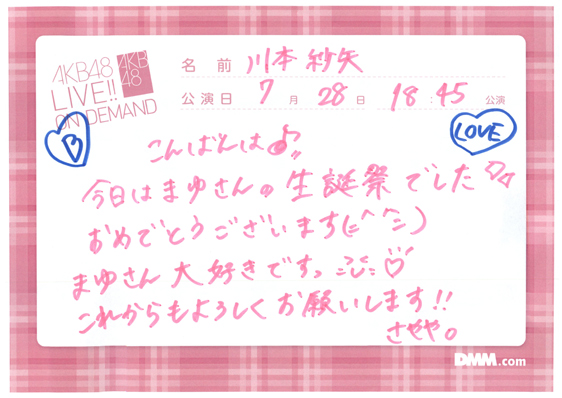 AKB48
LIVE!!
ON DEMAND
AKB
48
名前 川本 紗矢
公演日 7月 28日 18:45 公演
B
LOVE
こんばんは♪
今日はまゆさんの生誕祭でした
おめでとうございます(=^^=)
まゆさん大好きですっ ♡
これからもよろしくお願いします!!
さやや。
DMM.com